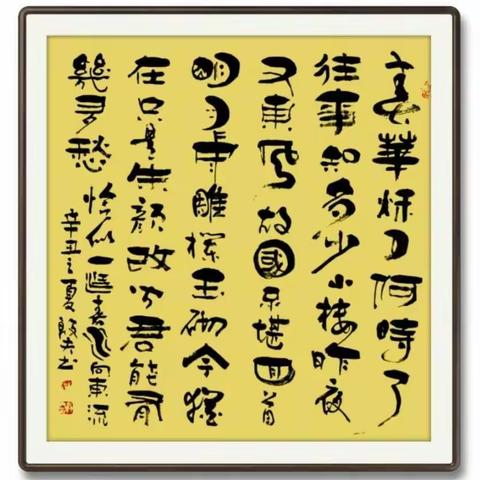 春華秋月何時了
往事知多少小樓昨夜
又東風故國不堪回首
明月中雕欄玉砌今猶
在只是朱顔改问君能有
幾多愁
恰似一江春水向東流
辛丑之夏殷夫书